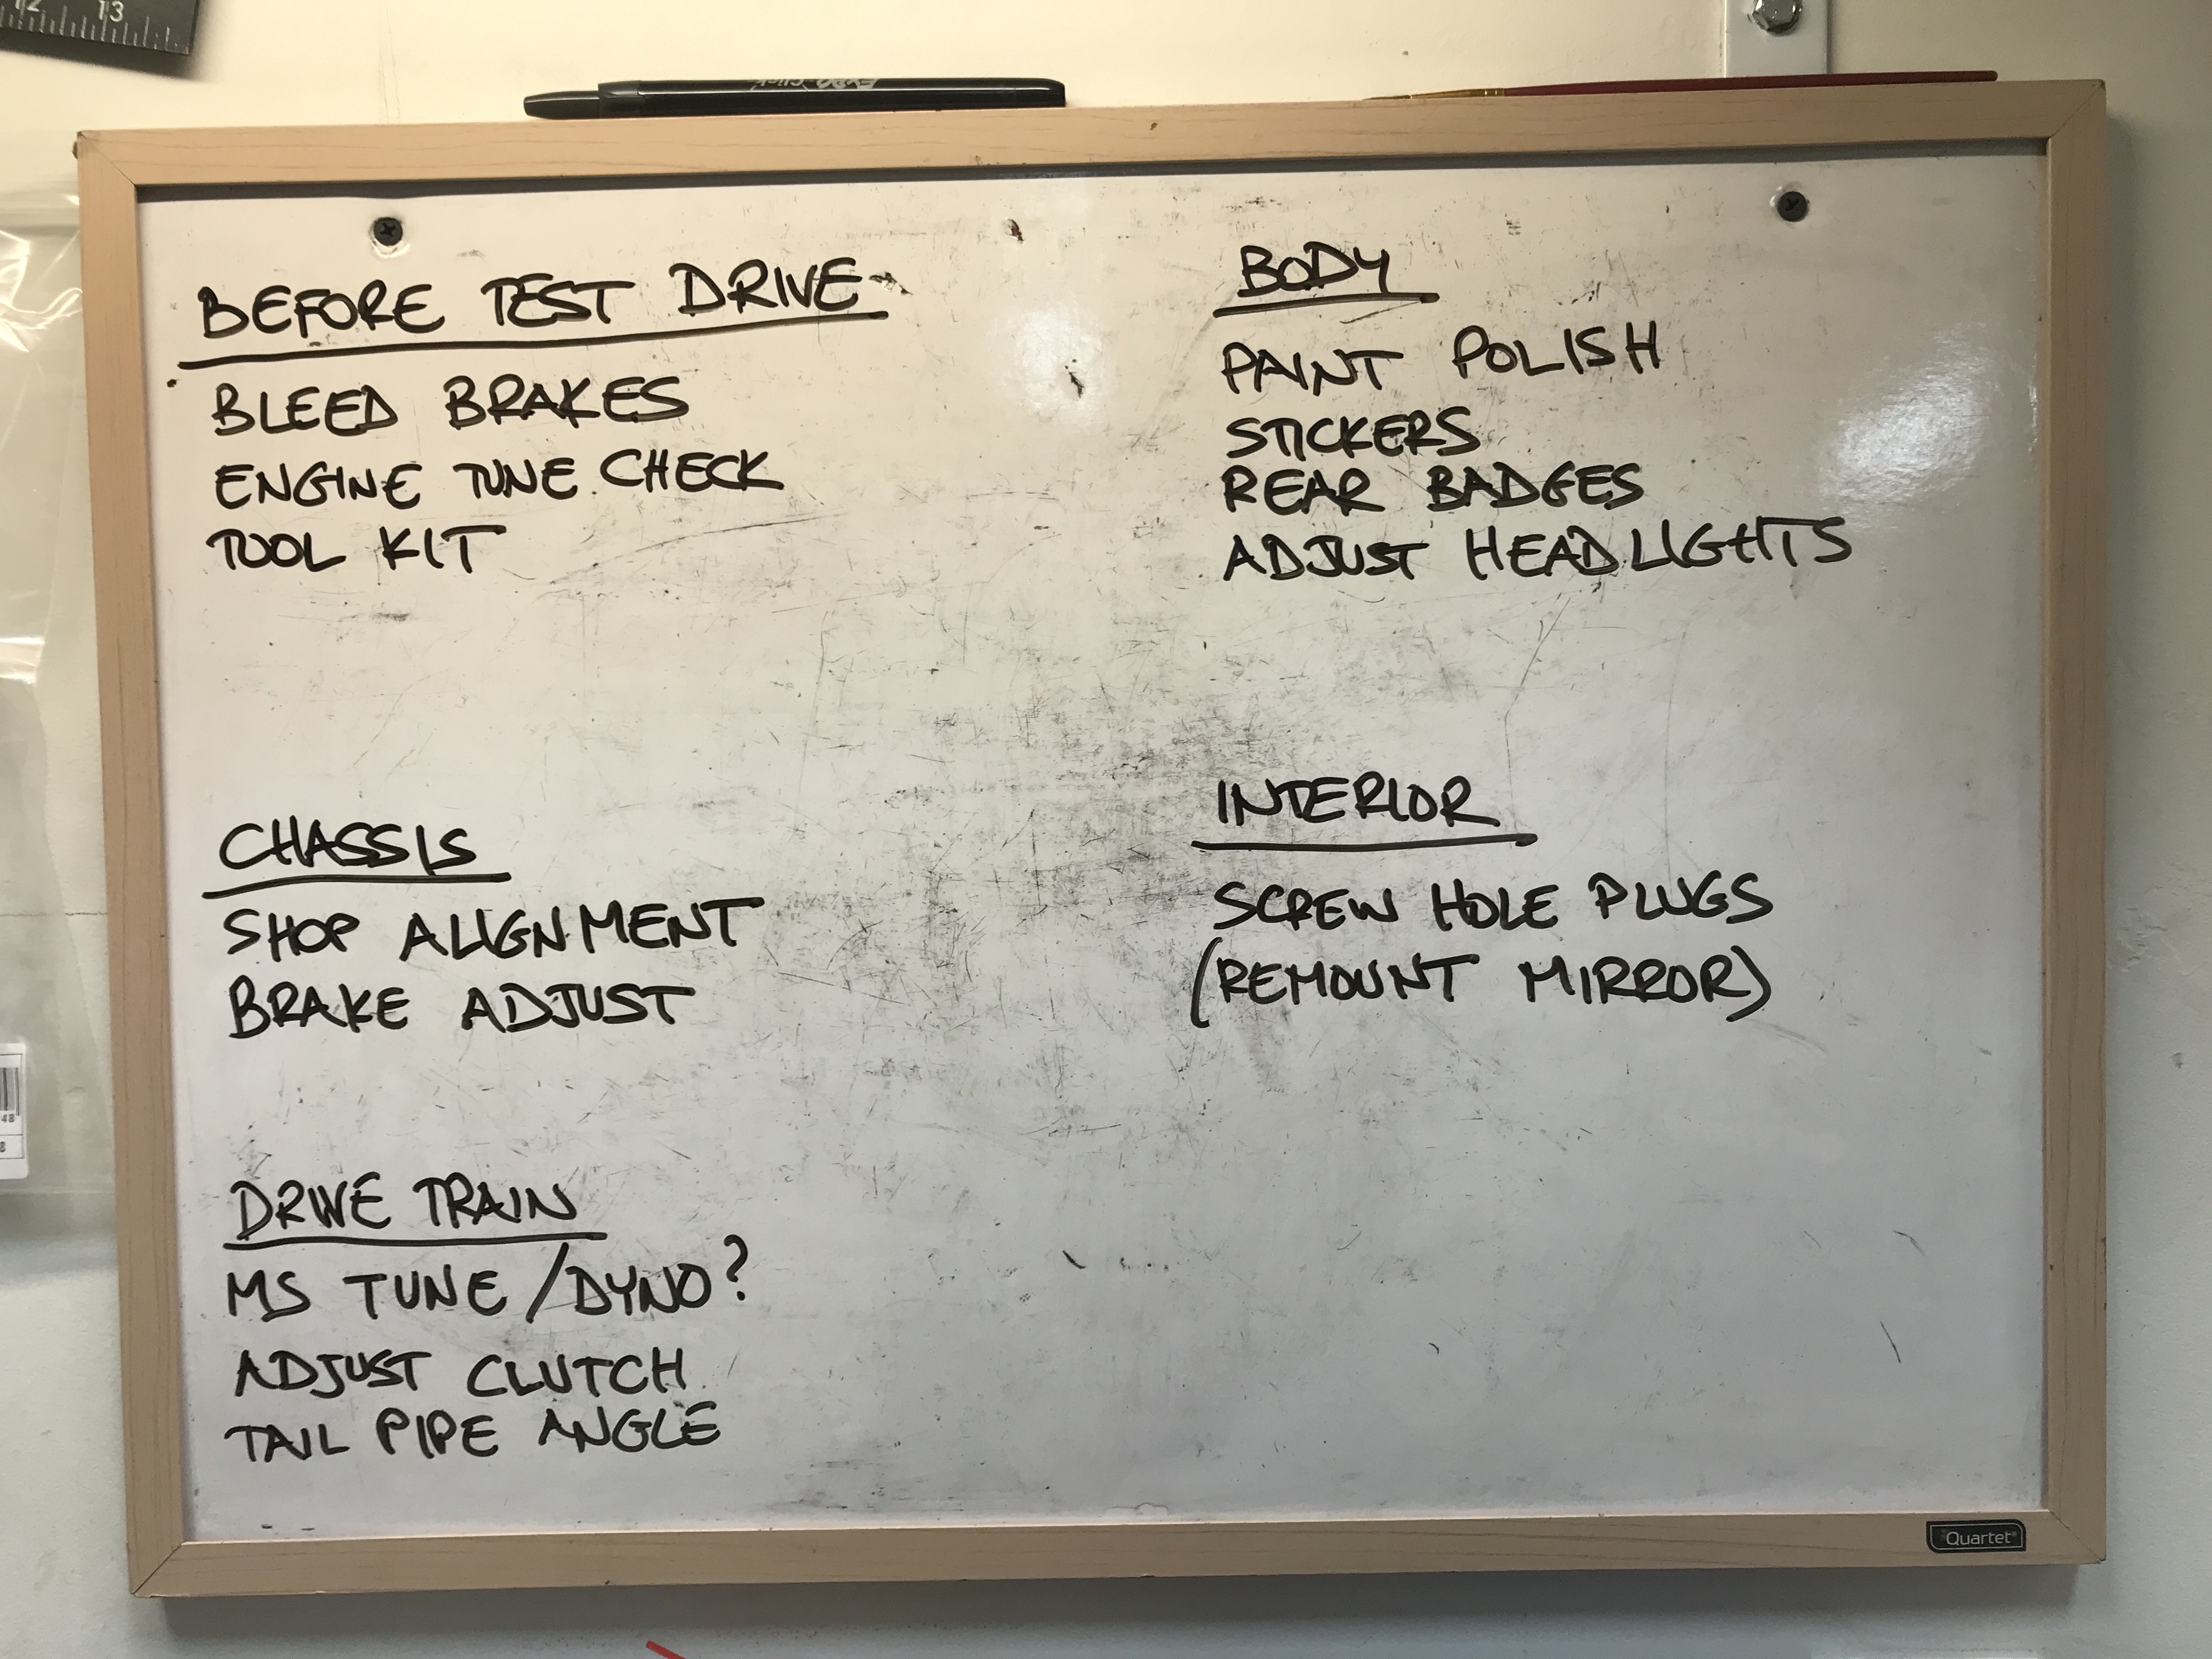 12 13
EXPO Click
BEFORE TEST DRIVE
BLEED BRAKES
ENGINE TUNE CHECK
TOOL KIT
CHASSIS
SHOP ALIGNMENT
BRAKE ADJUST
DRIVE TRAIN
MS TUNE/DYNO?
ADJUST CLUTCH
TAIL PIPE ANGLE
BODY
PAINT POLISH
STICKERS
REAR BADGES
ADJUST HEADLIGHTS
INTERIOR
SCREW HOLE PLUGS
(REMOUNT MIRROR)
48
8
Quartet